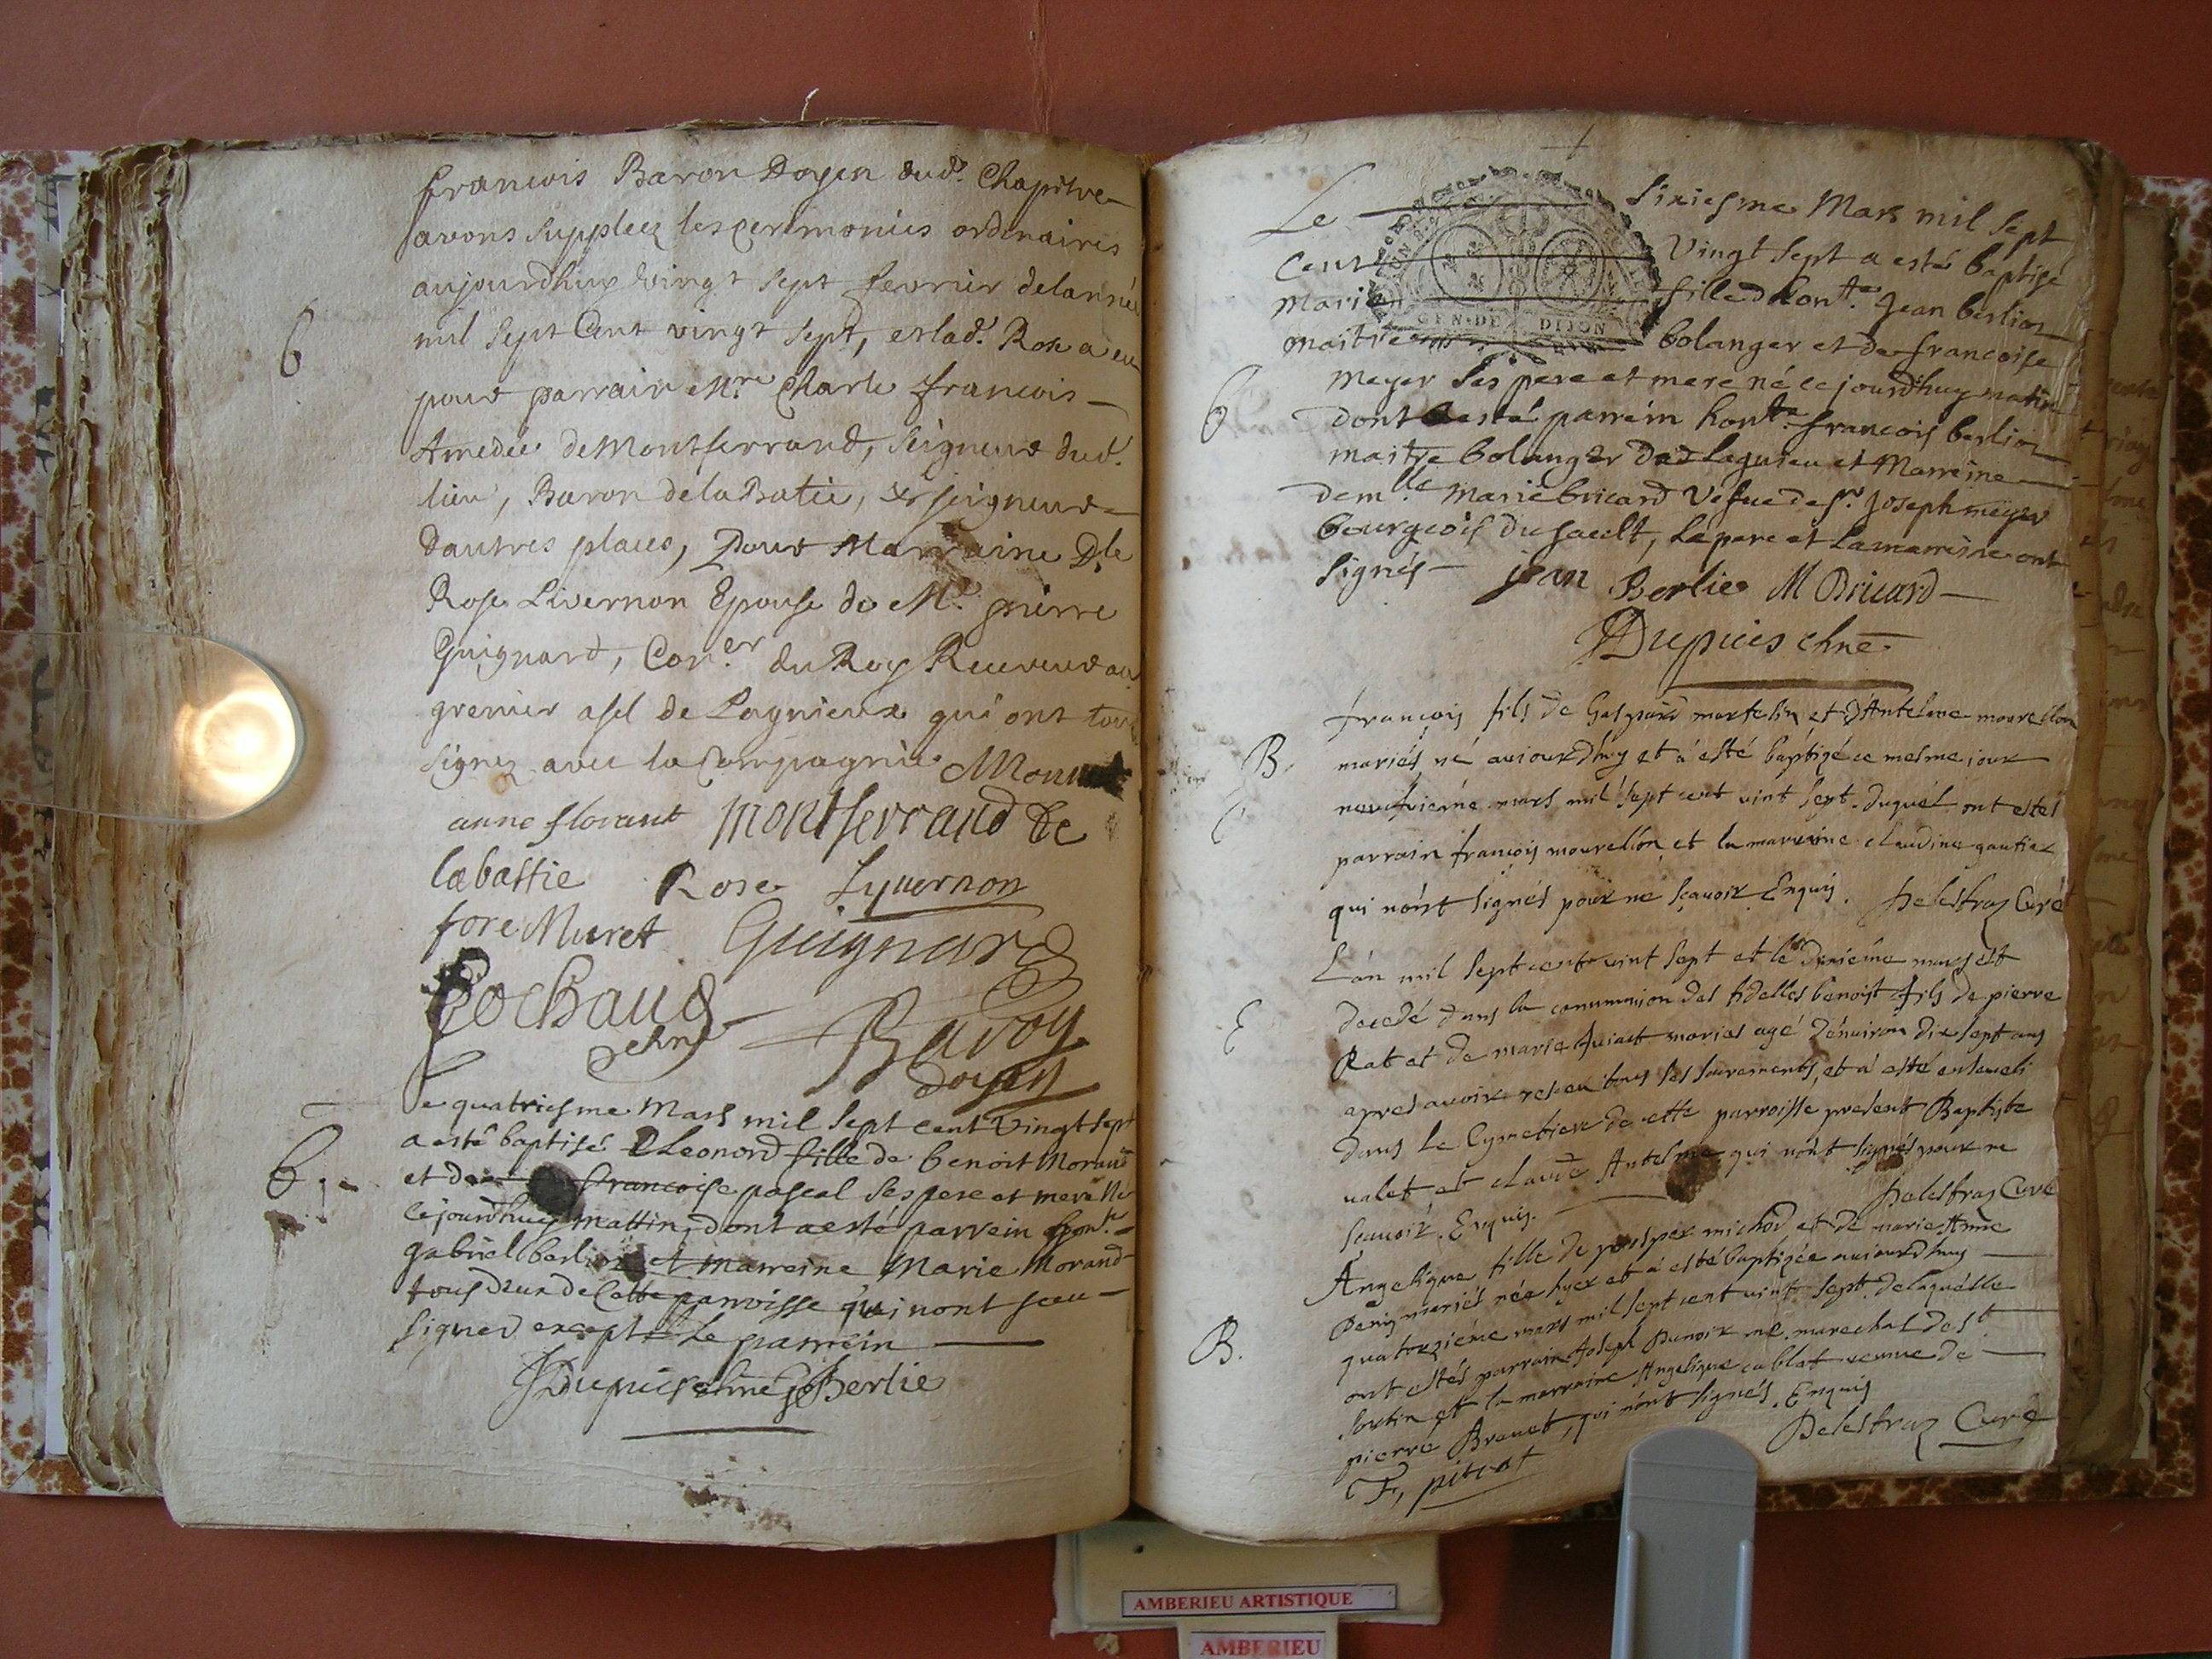 francois Baron Doyen dud. Chapitre
avons Suppleez les ceremonies ordinaires
aujourdhuy vingt sept fevrier delannée
mil sept Cent vingt sept, et lad. Rose a eu
pour parrain Mre Charle francois
Amedée de Montferrand, Seigneur dud.
lieu, Baron de la Batie, & seigneur
dautres places, Pour Marraine Dle
Rose Livernon Epouse de Mr pierre
Guignard, Coner du Roy Receveur au
grenier a sel de Lagnieux qui ont tous
signez avec la Compagnie
anne florant Montferrand De
labastie Rose Lyvernon
Muret Guignard
Cochaud
chne
Baron
doyen
B
Le quatriesme Mars mil sept cent vingt sept
a esté baptisé Eleonord fille de benoit Morand
et de francoise pascal ses pere et mere Née
cejourdhuy mattin, dont a esté parrein hont.
gabriel berlie et marreine Marie Morand
tous deux de Cette parroisse qui nont sceu
signer excepté Le parrein
Dupuis chne G Berlie
B
Le sixiesme Mars mil sept
Cent Vingt sept a esté baptisé
Marie fille d hon.te Jean berlion
maitre bolanger et de francoise
GEN. DE DIJON
meyer ses pere et mere né ce jourdhuy matin
B
dont a esté parrein hon.te francois berlion
maitre bolanger de Lagnieu et Marreine
demlle Marie bricard Vefue de Sr. Joseph meyer
bourgeois du sault, Le pere et La marreine ont
signés jean Berlie M Bricard
Dupuis chne
francois fils de Gaspard martelin et d'Antelme mourellon
B.
mariés né aujourdhuy et a esté baptizé ce mesme jour
neuvfieme mars mil sept cent vint sept. duquel ont estés
parrain francois mourellon et la marreine claudine gautier
qui n'ont signés pour ne scavoir Enquis. Delestraz Curé
L'an mil sept cent vint sept et le dixieme mars est
E
decedé dans la communion des fidelles benoist fils de pierre
Rat et de marie mariés agé d'environ dix sept ans
apres avoir receu tous ses sacrements, et a esté enseveli
dans le Cymetiere de cette parroisse present Baptiste
valet et claude Antelme qui n'ont signés pour ne
scavoir. Enquis. Delestraz Curé
Angelique fille de prosper michod et de marie Anne
Denis mariés née hyer et a esté baptizée aujourdhuy
B.
quatorzieme mars mil sept cent vint sept. de laquelle
ont estés parrain Joseph Dunoir me. marechal de St
Sorlin et la marraine Angelique cablat veuve de
pierre Brevet, qui n'ont signés. Enquis
F, pitrat Delestraz Curé
AMBERIEU ARTISTIQUE
AMBERIEU